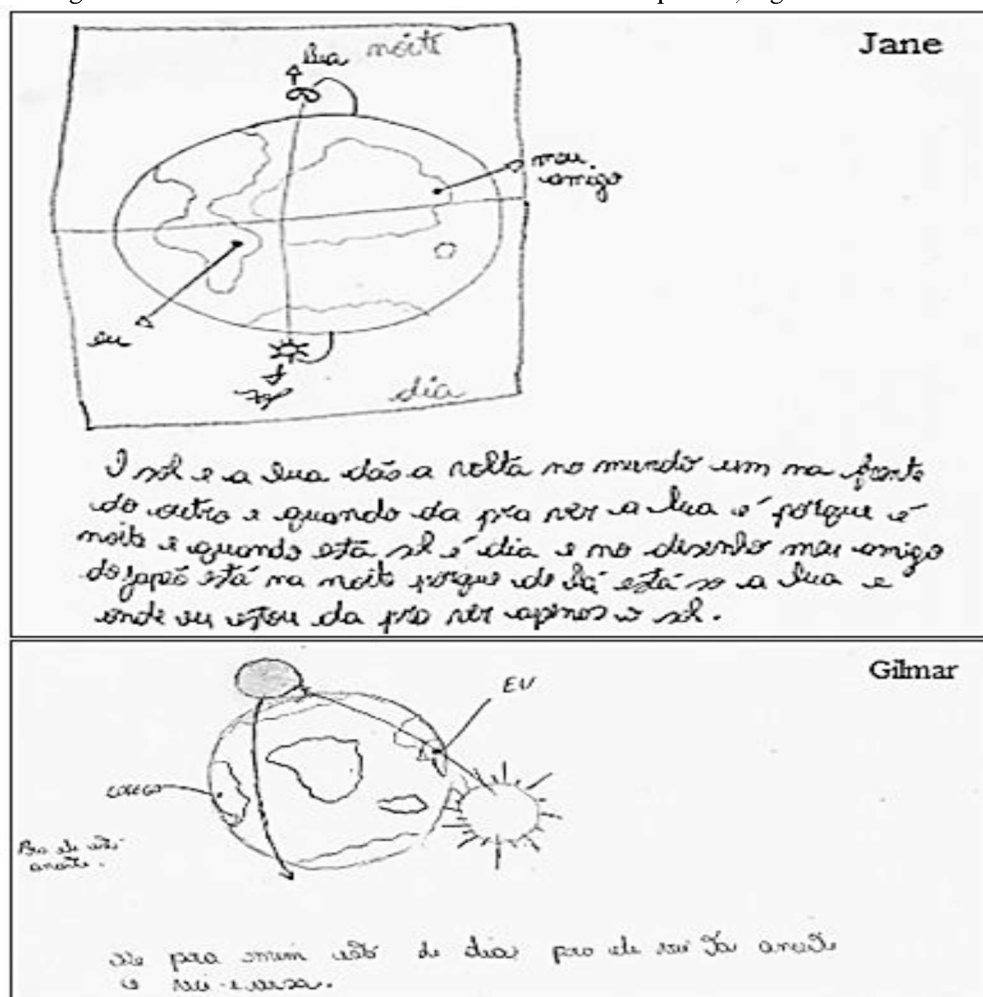 Jane
lua noite
meu
amigo
eu
sol
dia
O sol e a lua dão a volta no mundo um na frente
do outro e quando da pra ver a lua é porque é
noite e quando está sol é dia e no desenho meu amigo
do japão está na noite porque de lá está so a lua e
onde eu estou da pra ver apenas o sol.
Gilmar
EU
COLEGA
Pro ele está
anoite.
se pra mim está de dia pro ele vei ta anoite
e vei-e-versa.